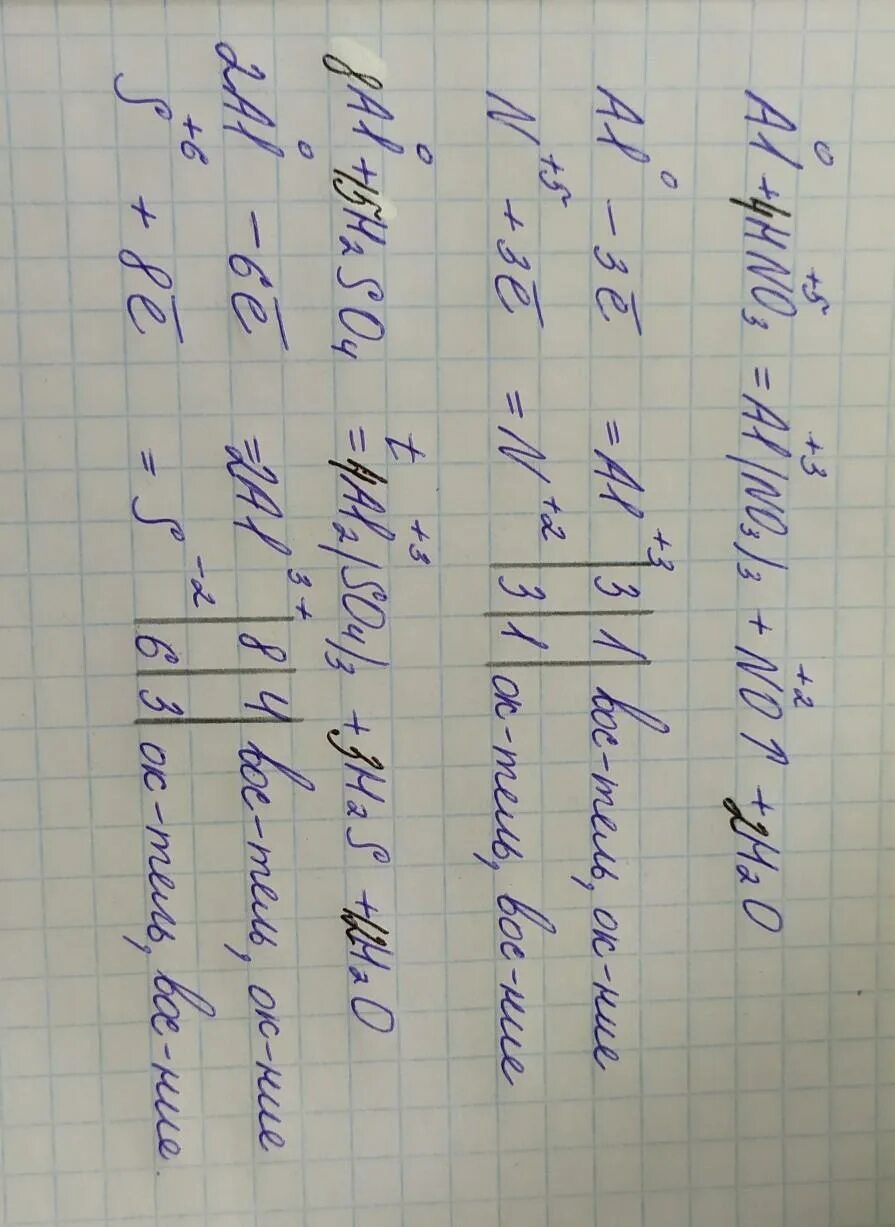 Al⁰ + 4HN⁺⁵O₃ = Al⁺³(NO₃)₃ + N⁺²O↑ + 2H₂O
Al⁰ - 3ē = Al⁺³ | 3 | 1 | вос-тель, ок-ние
N⁺⁵ + 3ē = N⁺² | 3 | 1 | ок-тель, вос-ние
8Al⁰ + 15H₂SO₄ =ᵗ 4Al₂⁺³(SO₄)₃ + 3H₂S + 12H₂O
2Al⁰ - 6ē = 2Al³⁺ | 8 | 4 | вос-тель, ок-ние
S⁺⁶ + 8ē = S⁻² | 6 | 3 | ок-тель, вос-ние.